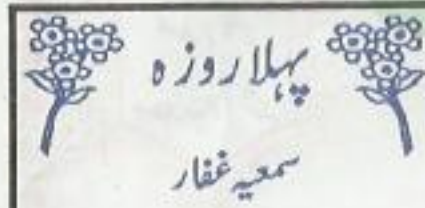 پہلا روزہ
سمعیہ غفار